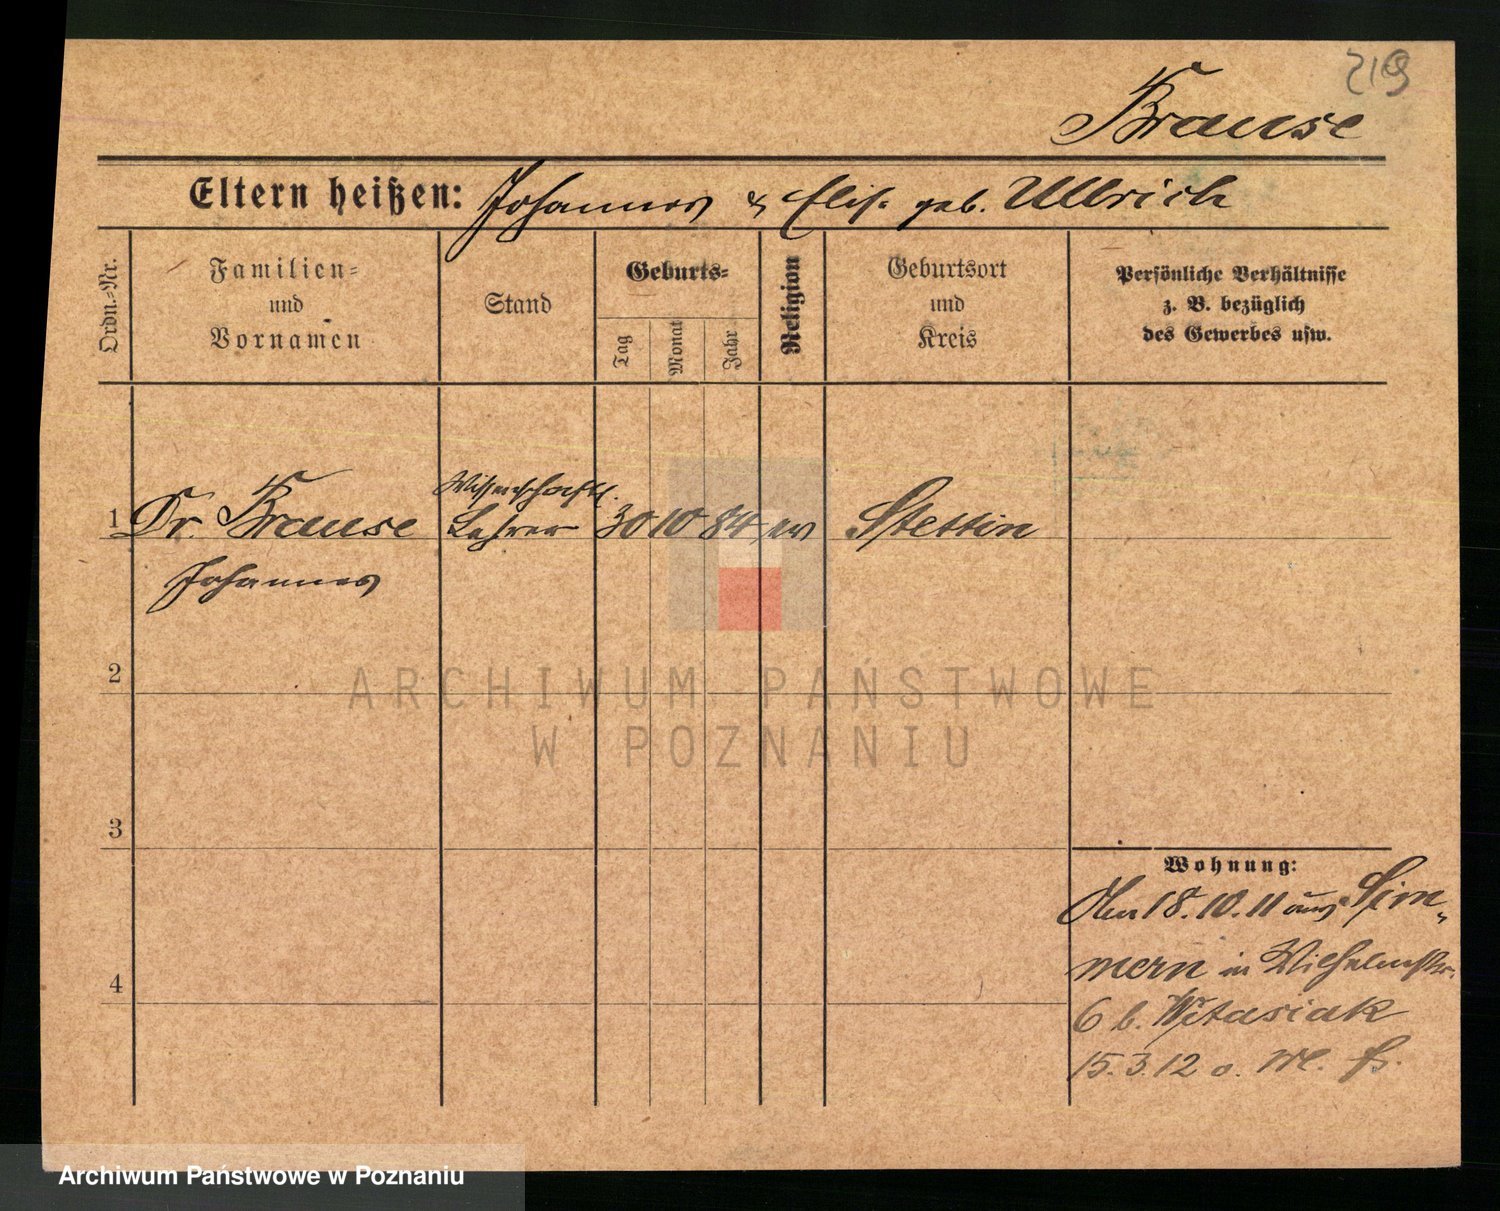 219
Krause
Eltern heißen: Johannes & Elis. geb. Ullrich
Ordn.-Nr.
Familien-
und
Vornamen
Stand
Geburts-
Tag
Monat
Jahr
Religion
Geburtsort
und
Kreis
Persönliche Verhältnisse
z. B. bezüglich
des Gewerbes usw.
Wissenschaftl.
1 Dr. Krause Lehrer 30 10 84 ev Stettin
Johannes
2
ARCHIWUM PAŃSTWOWE
W POZNANIU
3
Wohnung:
18.10.11 aus Sim-
mern in Wilhelmstr.
4
6 b. Witasiak
15.3.12 o.
Archiwum Państwowe w Poznaniu